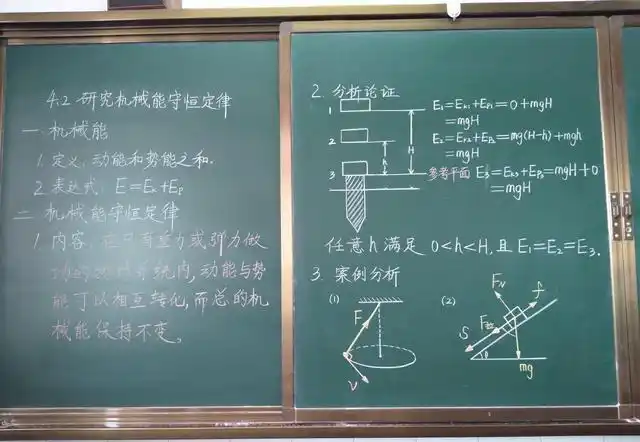 4.2 研究机械能守恒定律
一 机械能
1. 定义: 动能和势能之和.
2. 表达式: E=Ek+Ep
二 机械能守恒定律
1. 内容: 在只有重力或弹力做
功的物体系统内,动能与势
能可以相互转化,而总的机
械能保持不变。
2. 分析论证
1
2
3
H
h
E1=Ek1+Ep1=0+mgH
=mgH
E2=Ek2+Ep2=mg(H-h)+mgh
=mgH
参考平面 E3=Ek3+Ep3=mgH+0
=mgH
任意h满足 0<h<H, 且 E1=E2=E3.
3. 案例分析
(1)
F
v
(2)
FN
f
S
θ
mg